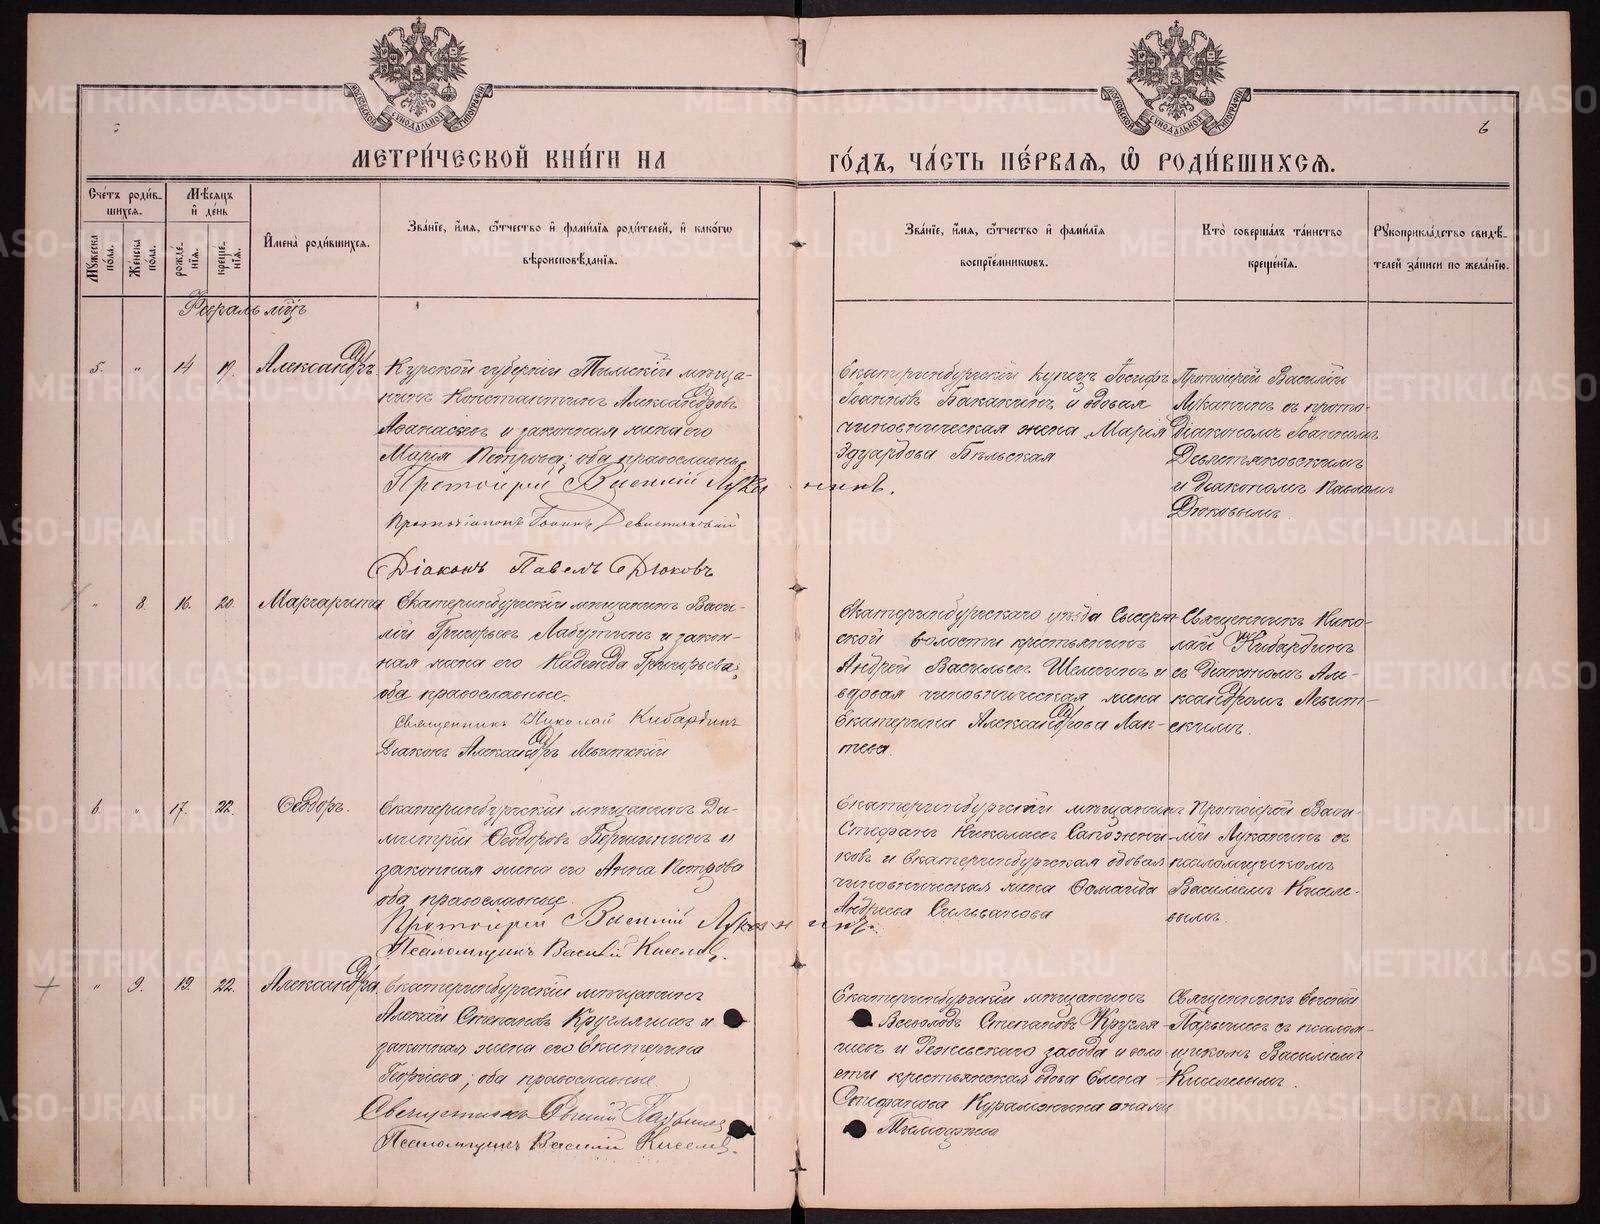 МОСКОВСКОЙ СИНОДАЛЬНОЙ ТИПОГРАФІИ
МОСКОВСКОЙ СИНОДАЛЬНОЙ ТИПОГРАФІИ
6
МЕТРИ́ЧЕСКОЙ КНИ́ГИ НА
ГО́ДЪ, ЧА́СТЬ ПЕ́РВАЯ, Ѡ҆ РОДИ́ВШИХСЯ.
Сче́тъ роди́в-
шихся.
Мѣ́сяцъ
и҆ де́нь
Мꙋ́жеска по́ла.
Же́нска по́ла.
рожде́нїя.
креще́нїя.
И҆мена̀ роди́вшихся.
Зва́нїе, и҆́мя, ѻ҆́тчество и҆ фами́лїя роди́телей, и҆ како́гѡ
вѣроисповѣ́данїя.
Зва́нїе, и҆́мя, ѻ҆́тчество и҆ фами́лїя
воспрїе́мникѡвъ.
Кто̀ соверша́лъ та́инство
креще́нїя.
Рꙋкоприкла́дство свидѣ́-
телей за́писи по жела́нїю.
Февраль мцъ
5. " 14 19. Александръ
Курской губерніи Тимскій мѣща-
нинъ Константинъ Александровъ
Аѳанасьевъ и законная жена его
Марія Петрова; оба православные.
Протоіерей Василій Луканинъ.
Протодіаконъ Іоаннъ Девятьяковскій
Діаконъ Павелъ Дюковъ
Екатеринбургскій купецъ Іосифъ
Іоанновъ Бакакинъ и вдовая
чиновническая жена Марія
Эдуардова Бѣльская
Протоіерей Василій
Луканинъ съ прото-
діакономъ Іоанномъ
Девятьяковскимъ
и діакономъ Павломъ
Дюковымъ.
" 8. 16. 20. Маргарита
Екатеринбургскій мѣщанинъ Васи-
лій Григорьевъ Лабутинъ и закон-
ная жена его Надежда Григорьева;
оба православные.
Священникъ Николай Кибардинъ
Діаконъ Александръ Левитскій
Екатеринбургскаго уѣзда Сысерт-
ской волости крестьянинъ
Андрей Васильевъ Шелминъ и
вдовая чиновническая жена
Екатерина Александрова Лап-
тева.
Священникъ Нико-
лай Кибардинъ
съ діакономъ Але-
ксандромъ Левит-
скимъ.
6. " 17. 22. Ѳеодоръ.
Екатеринбургскій мѣщанинъ Ди-
митрій Ѳеодоровъ Вершининъ и
законная жена его Анна Петрова
оба православные.
Протоіерей Василій Луканинъ.
Псаломщикъ Василій Киселевъ.
Екатеринбургскій мѣщанинъ
Стефанъ Николаевъ Сапожни-
ковъ и екатеринбургская вдовая
чиновническая жена
Андреева Сильванова
Протоіерей Васи-
лій Луканинъ съ
псаломщикомъ
Василіемъ Кисе-
левымъ.
" 9. 19. 22. Александра
Екатеринбургскій мѣщанинъ
Алексій Степановъ Кругляшевъ и
законная жена его Екатерина
Георгіева; оба православные
Священникъ Евгеній
Псаломщикъ Василій Киселевъ.
Екатеринбургскій мѣщанинъ
Всеволодъ Степановъ Кругля-
шевъ и Режевскаго завода и воло-
сти крестьянская вдова Елена
Стефанова
Тимофеева
Священникъ Евгеній
съ псалом-
щикомъ Василіемъ
Киселевымъ.
METRIKI.GASO-URAL.RU